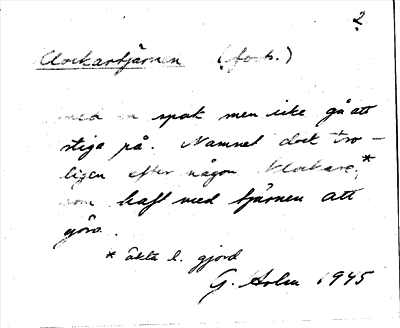 2
Klockartjärnen (forts.)
med en spak men icke gå att
stiga på. Namnet dock tro-
ligen efter någon klockare,*
som haft med tjärnen att
göra.
* äkta l. gjord
G. 1945